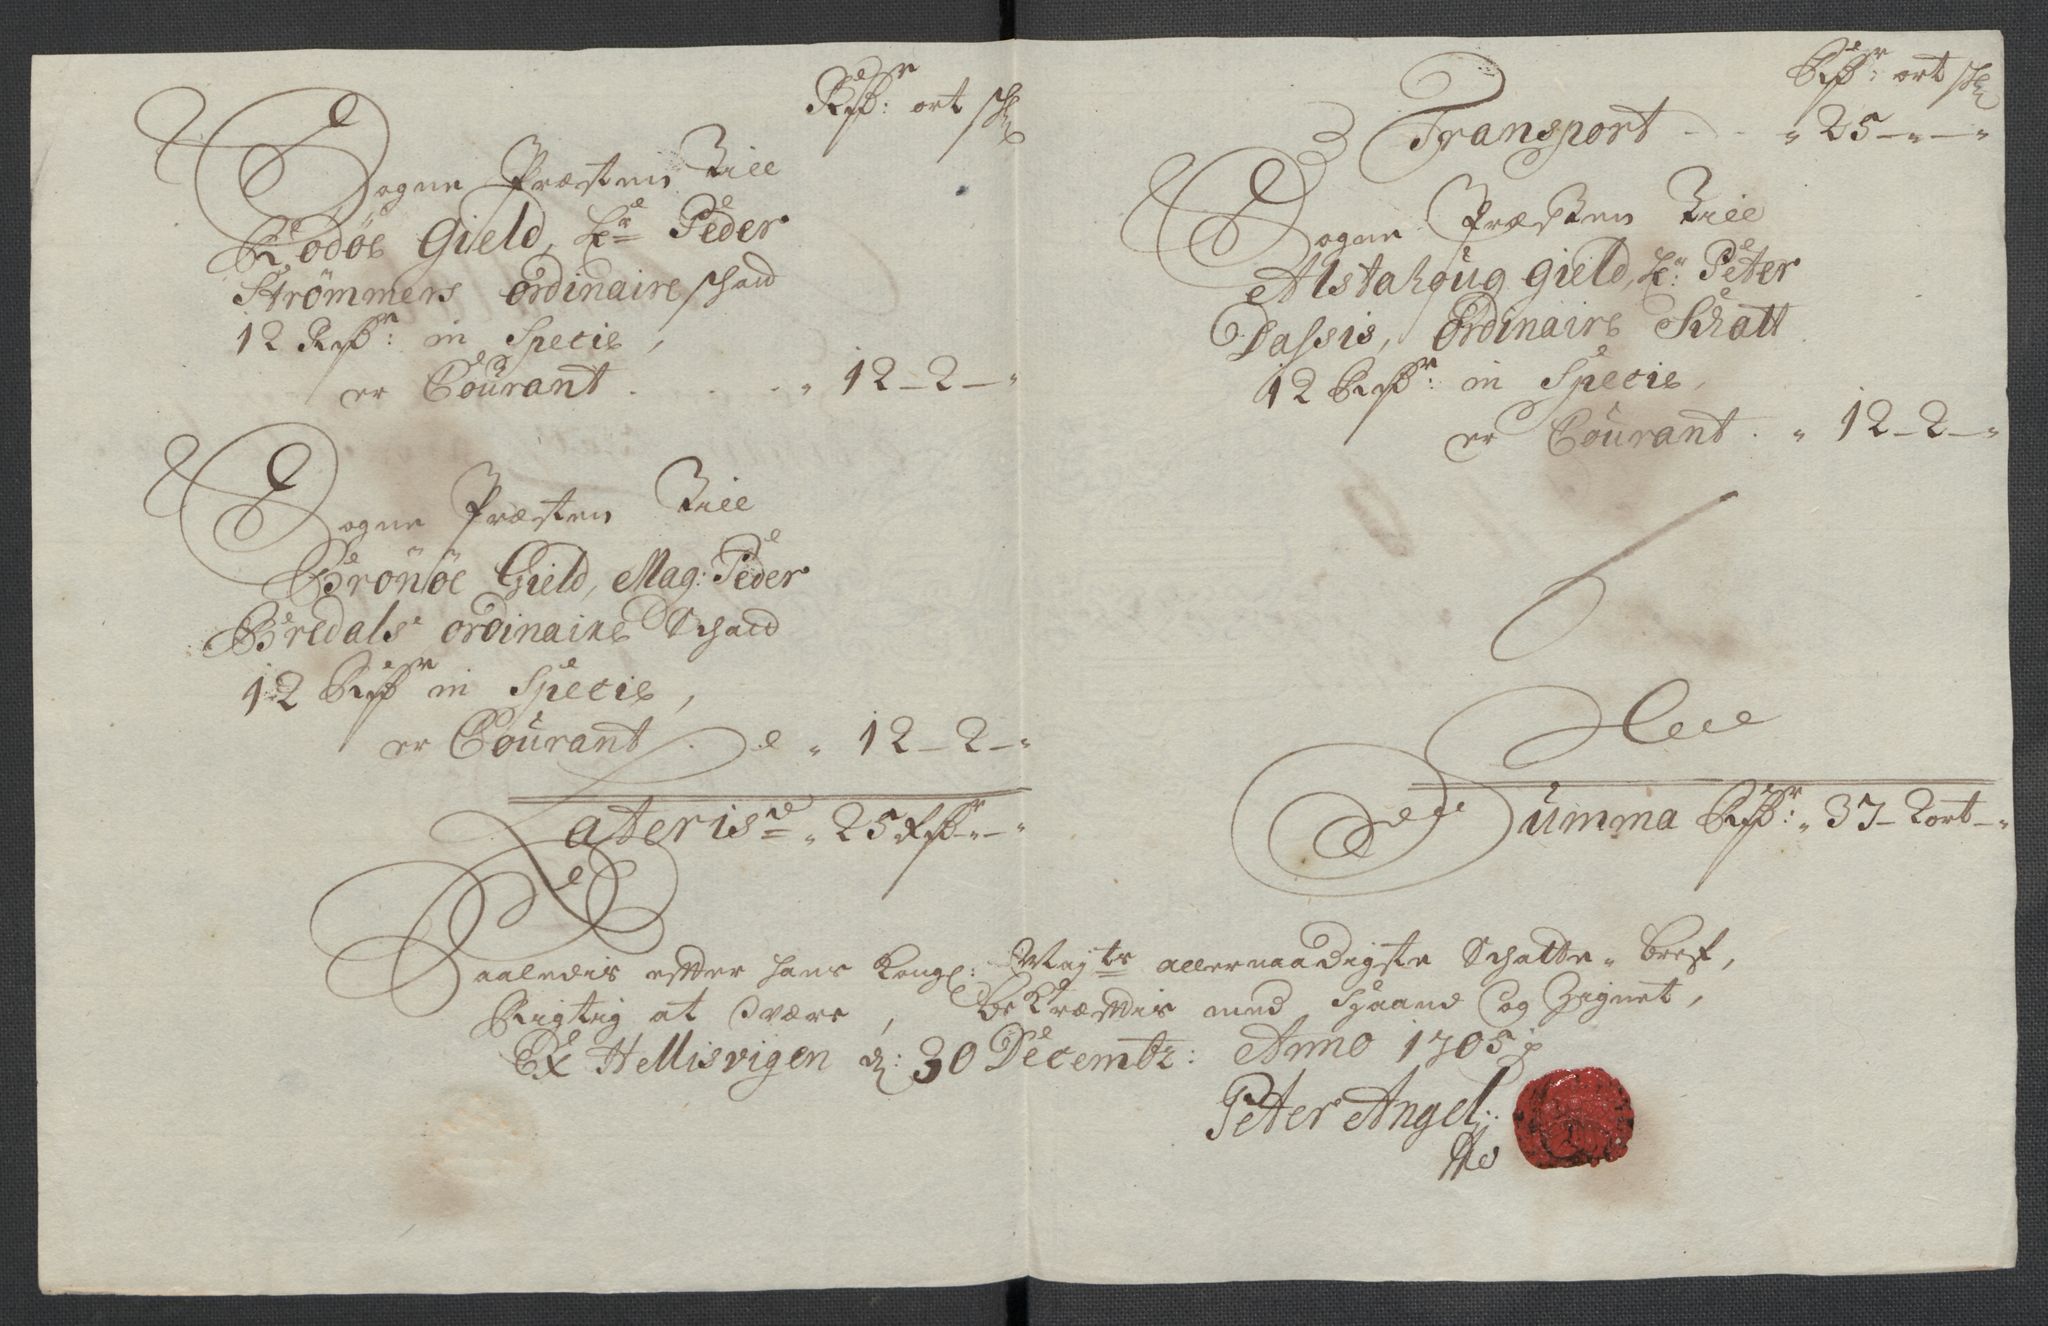 Rdr: ort sch
Sogne Præsten Till
Rödöe Gield, Hr Peder
Strömmers ordinaire schad
12 Rdr: in Specie,
er Courant . . . „ 12 – 2 – „
Sogne Præsten Till
Brönöe Gield, Mag: Peder
Bredals ordinaire Schad
12 Rdr in Specie,
er Courant . „ 12 – 2 – „
Lateris „ 25 Rdr „ – „
Rdr: ort sch
Transport - - „ 25 – „ – „
Sogne Præsten Till
Alstahoug Gield, Hr: Peter
Dassis, ordinaire Skatt
12 Rdr: in Specie,
er Courant . „ 12 – 2 – „
Summa Rdr: „ 37 – 2 ort – „
Saaledis effter hans Kongl: Mayts allernaadigste Schatte - bref,
Rigtig at være, bekræfftis med Haand og Zignet,
Hellisvigen d: 30 Decembr: Anno 1705
Peter Angel: